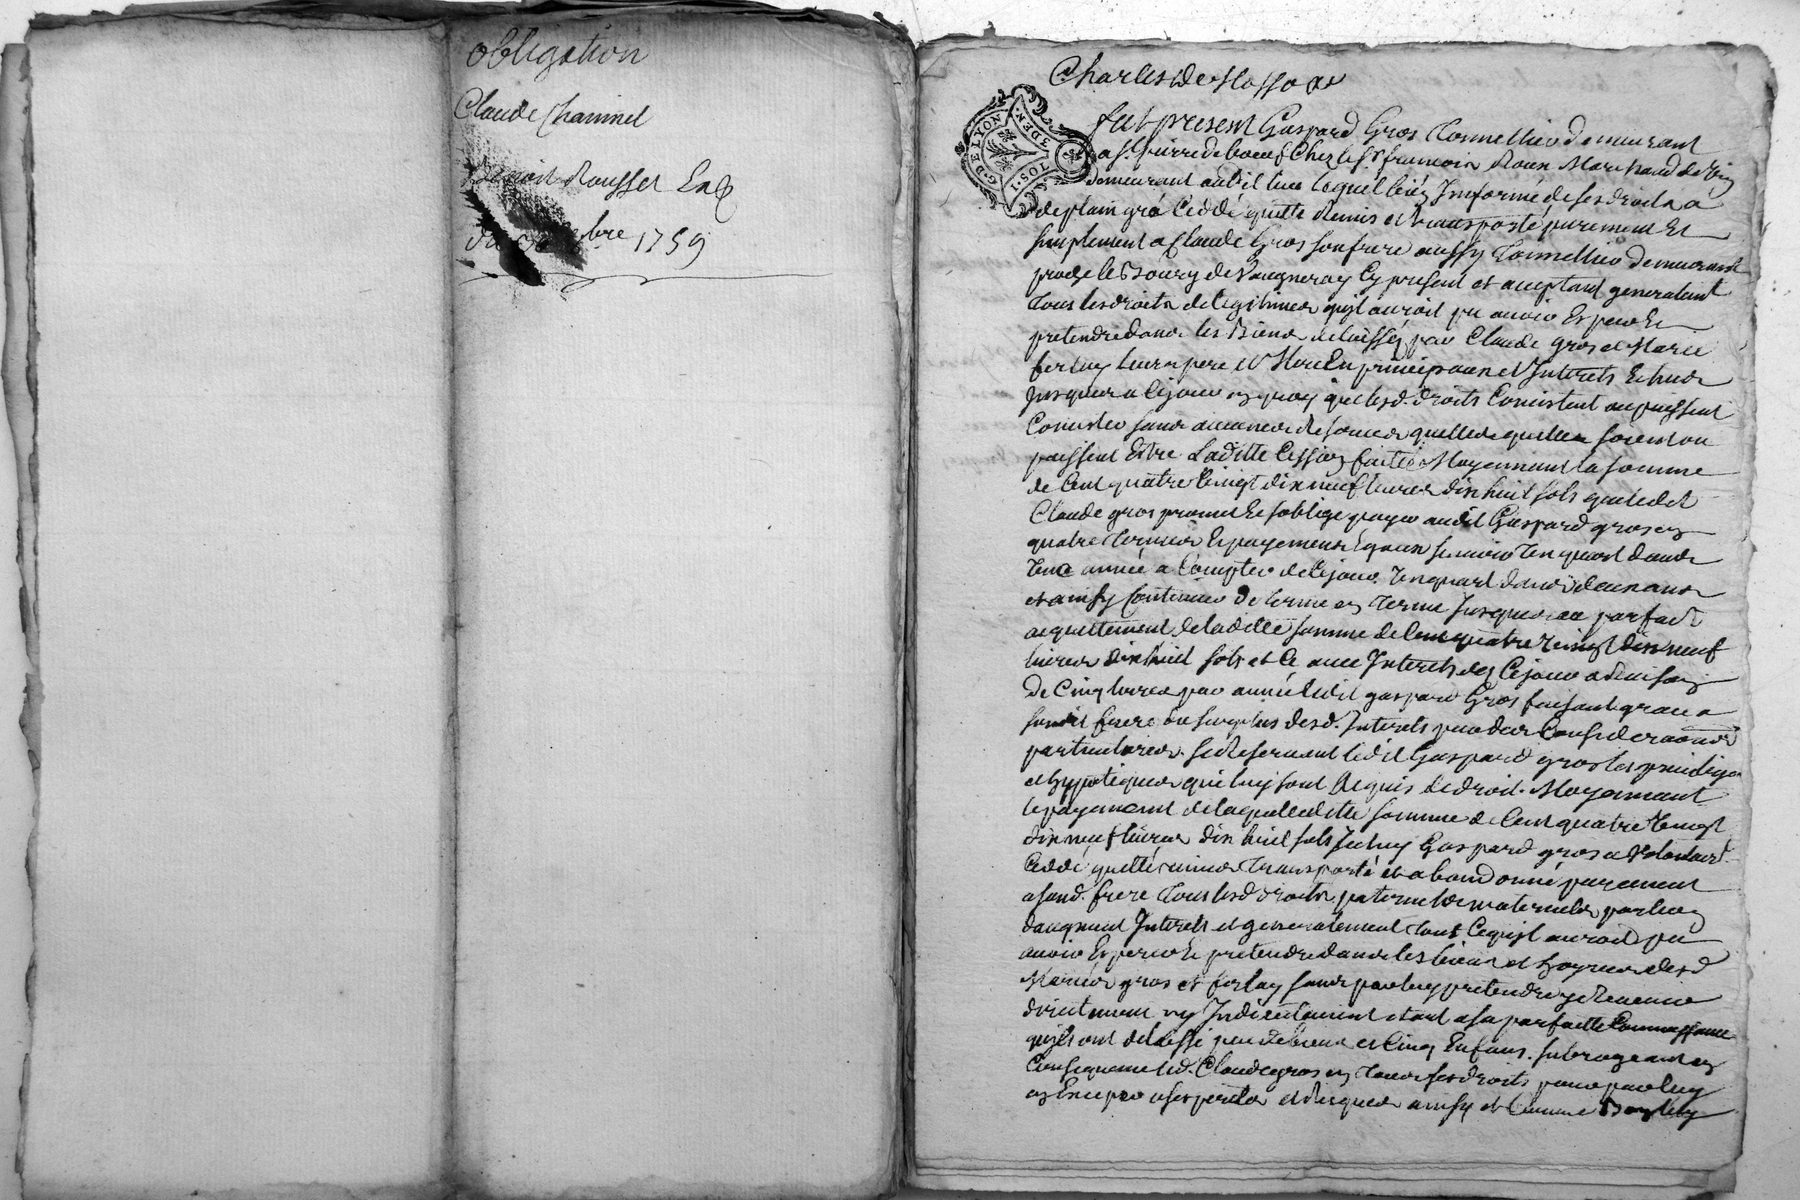 obligation
Claude Chaninel
Benoit Rousset
du bre 1759
Charles de
G. DE LYON
TOS. I
DEN.
fut present Gaspard Gros Tonnellier demeurant
a St. pierre de boeuf Chez le Sr francois Roux Marchand de
demeurant audit lieu lequel bien Informé de ses droits a
de plain gré Ceddé quitté Remis et transporté purement Et
simplement a Claude Gros son frere aussy Tonnellier demeurant
proche le Bourg de Vaugneray Cy present et acceptant generalemt
tous les droits de legitimes quil auroit pu avoir Esperer Et
pretendre dans les Biens delaissés par Claude gros et Marie
ferlay leurs pere et Mere En principaux et Interets Echus
Jusques a Cejour en quoy que lesd. droits Consistent ou puissent
Consister sans aucunes reserves quelles quelles soient ou
puissent Estre Laditte Cession faitte Moyennant la somme
de Cent quatre Vingt dix neuf livres dix huit sols que ledit
Claude gros promet Et soblige payer audit Gaspard gros en
quatre termes Et payements Egaux scavoir Un quart dans
Une année a Compter de Cejour, Un quart dans deux ans
et ainsy Continuer de terme en terme Jusques au parfait
acquittement de laditte somme de Cent quatre vingt dix neuf
livres dix huit sols et Ce avec Interets des Cejour a raison
de Cinq livres par année ledit gaspard Gros faisant grace a
sondit frere du surplus desd. Interets pour des Considerations
particulieres, se Reservant ledit Gaspard gros les privileges
et hypoteques qui luy sont Acquis de droit. Moyennant
le payement de laquelle ditte somme de Cent quatre Vingt
dix neuf livres dix huit sols Iceluy Gaspard gros a
Ceddé quitté remis transporté et abandonné purement
a sond. frere tous lesd droits paternels et maternels portion
daugment Interets et generalement tout Cequil auroit pu
avoir Esperer Et pretendre dans les biens et hoyries desd
Mariés gros et ferlay sans pouvoir y pretendre y Revenir
directement ny Indirectement etant a sa parfaitte Connoissance
quils ont delaissé peu de biens et Cinq Enfans. subrogeant en
Consequence led. Claude gros en tous ses droits pour par luy
en Exciper a ses perils et Risques ainsy et Comme